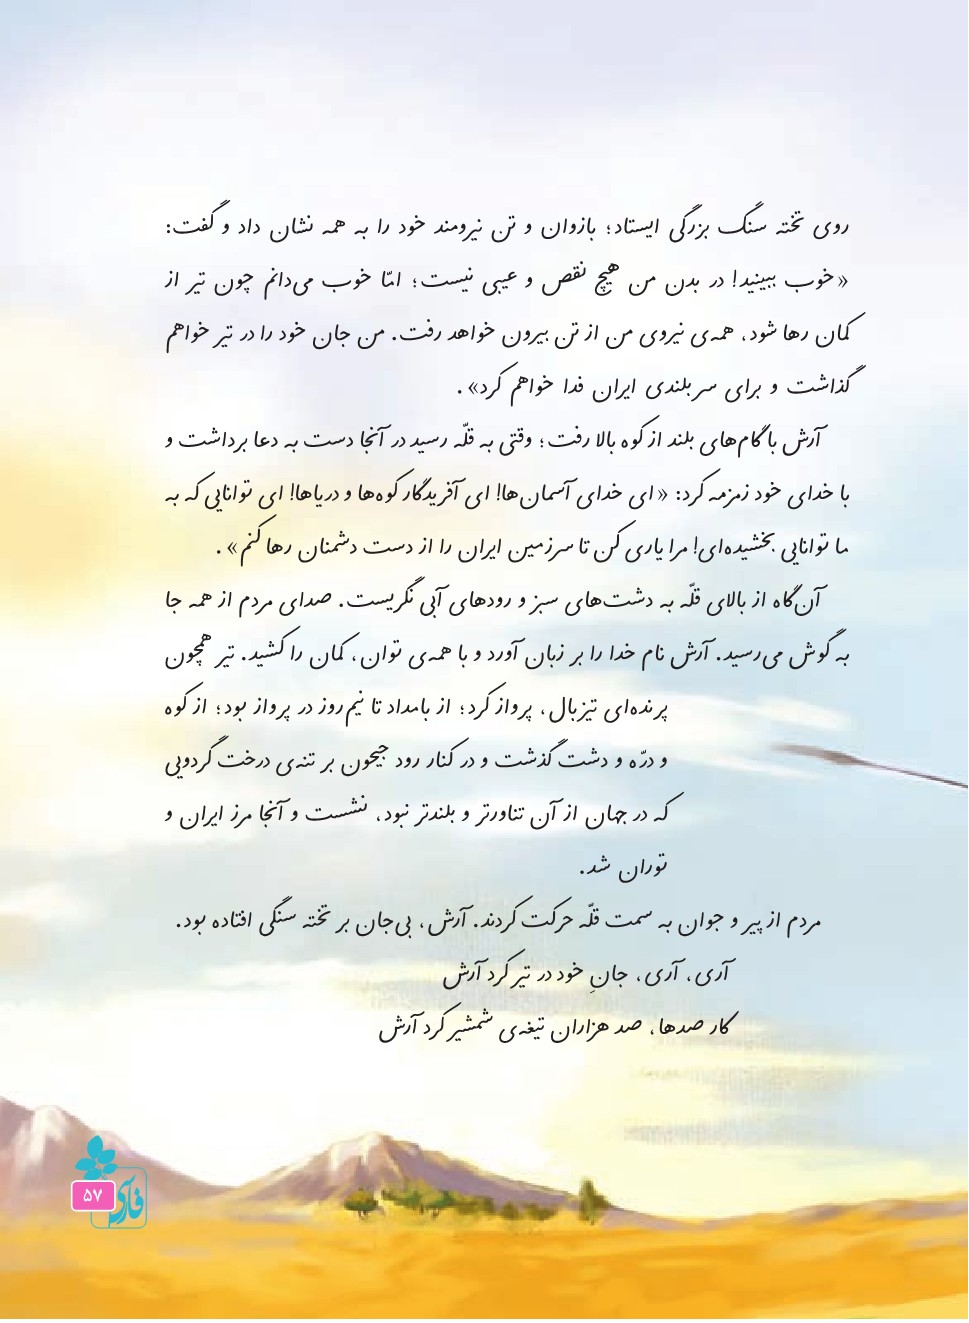 روی تخته سنگ بزرگی ایستاد؛ بازوان و تن نیرومند خود را به همه نشان داد و گفت:
«خوب ببینید! در بدن من هیچ نقص و عیبی نیست؛ امّا خوب می‌دانم چون تیر از
کمان رها شود، همه‌ی نیروی من از تن بیرون خواهد رفت. من جان خود را در تیر خواهم
گذاشت و برای سربلندی ایران فدا خواهم کرد».
آرش با گام‌های بلند از کوه بالا رفت؛ وقتی به قلّه رسید در آنجا دست به دعا برداشت و
با خدای خود زمزمه کرد: «ای خدای آسمان‌ها! ای آفریدگار کوه‌ها و دریاها! ای توانایی که به
ما توانایی بخشیده‌ای! مرا یاری کن تا سرزمین ایران را از دست دشمنان رها کنم».
آن‌گاه از بالای قلّه به دشت‌های سبز و رودهای آبی نگریست. صدای مردم از همه جا
به گوش می‌رسید. آرش نام خدا را بر زبان آورد و با همه‌ی توان، کمان را کشید. تیر همچون
پرنده‌ای تیزبال، پرواز کرد؛ از بامداد تا نیم‌روز در پرواز بود؛ از کوه
و درّه و دشت گذشت و در کنار رود جیحون بر تنه‌ی درخت گردویی
که در جهان از آن تناورتر و بلندتر نبود، نشست و آنجا مرز ایران و
توران شد.
مردم از پیر و جوان به سمت قلّه حرکت کردند. آرش، بی‌جان بر تخته سنگی افتاده بود.
آری، آری، جانِ خود در تیر کرد آرش
کار صدها، صد هزاران تیغه‌ی شمشیر کرد آرش
فارسی
۵۷